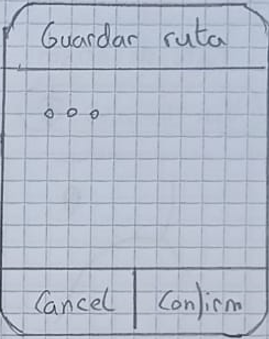 Guardar ruta
ooo
Cancel Confirm